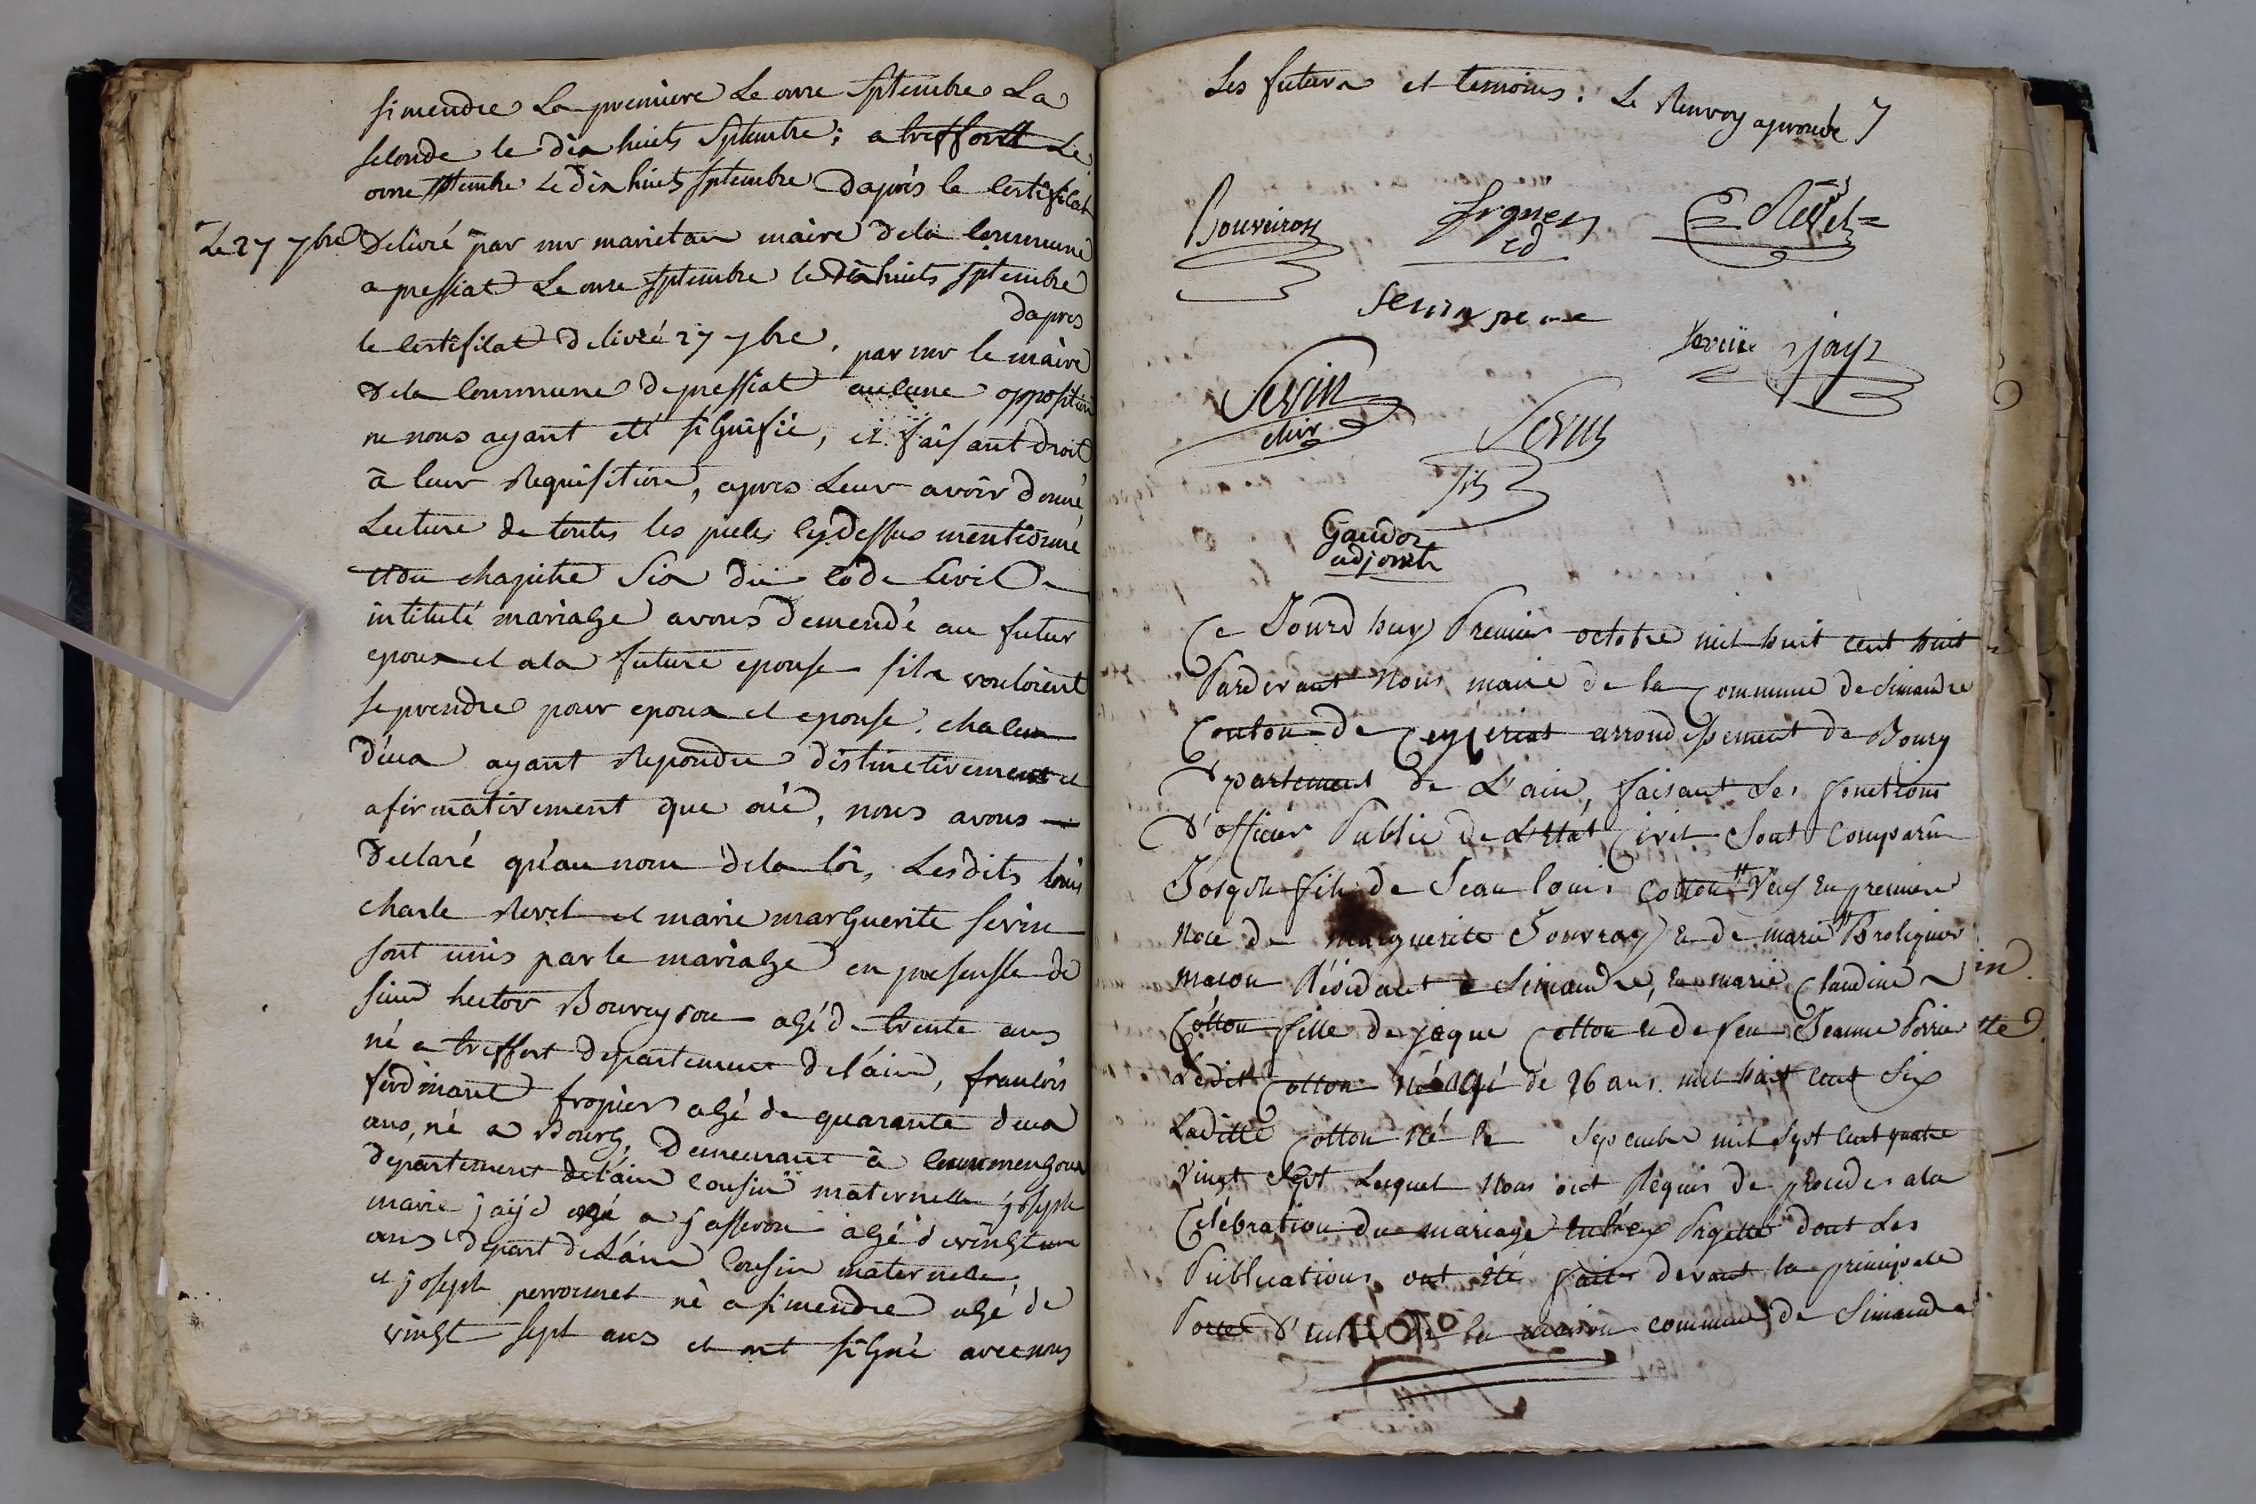 simendre La premiere Le onze Septembre La
seconde le dix huits Septembre; a treffort Le
onze septembre Le dix huits septembre d'après le certificat
Le 27 7bre Delivré par mr marietan maire de la commune
a pressiat Le onze septembre le dix huits septembre
dapres
le certificat Delivré 27 7bre. par mr le maire
de la commune de pressiat aucune opposition
ne nous ayant eté signifié, et faisant droit
à leur Requisition, apres Leur avoir donné
Lecture de toutes les pieces cy dessus mentionné
et du chapitre Six du code Civil
intitulé mariage avons demendé au futur
epoux et a la future epouse sils vouloient
se prendre pour epoux et epouse. chacun
d'eux ayant Repondu distinctivement et
afirmativement que oui, nous avons
Declaré qu'au nom de la loi, Lesdits louis
charle Revel et marie marguerite Sevin
sont unis par le mariage en presensse de
sieur hector Bouveyron agé de trente ans
né a treffort departement de l'ain, francois
ferdinant frogier agé de quarante deux
ans, né a Bourg, Demeurant à
departement de l'ain cousin maternelle joseph
marie jaÿe a jasseron agé de vingt
ans depart de L'ain Cousin maternelle,
et joseph perroumet né a simendre agé de
vingt sept ans et ont signé avec nous
Les futurs et temoins: Le Renvoy aprouvé 7
Bouveiron
C Revel
Sevin pere
jay
Sevin
Sevin
fils
Gaudoz
adjoint
Ce Jourd huy Premier octobre mil huit cent huit
Pardevant Nous maire de la Commune de Simandre
Conton de Ceyzeriat arrondissement de Bourg
Departement de L'ain, faisant les fonctions
d'officier Public de L'Etat Civil Sont comparu
Joseph fils de Jean louis Cotton Veuf En premiere
Noce de Marguerite Jouvray Et de marie Broliquier
macon Résidant a Simandre, Et marie Claudine
Cotton fille de jaque Cotton Et de feu Jeanne Perrin
Ledit Cotton Né agé de 26 ans. mil huit cent Six
Laditte Cotton Né le Septembre mil Sept Cent quatre
vingt Sept Lesquel Nous ont Réquis de proceder a la
Célébration du mariage dont Les
Publications ont été faites devant la principale
Porte d'entré de la maison commune de Simandre